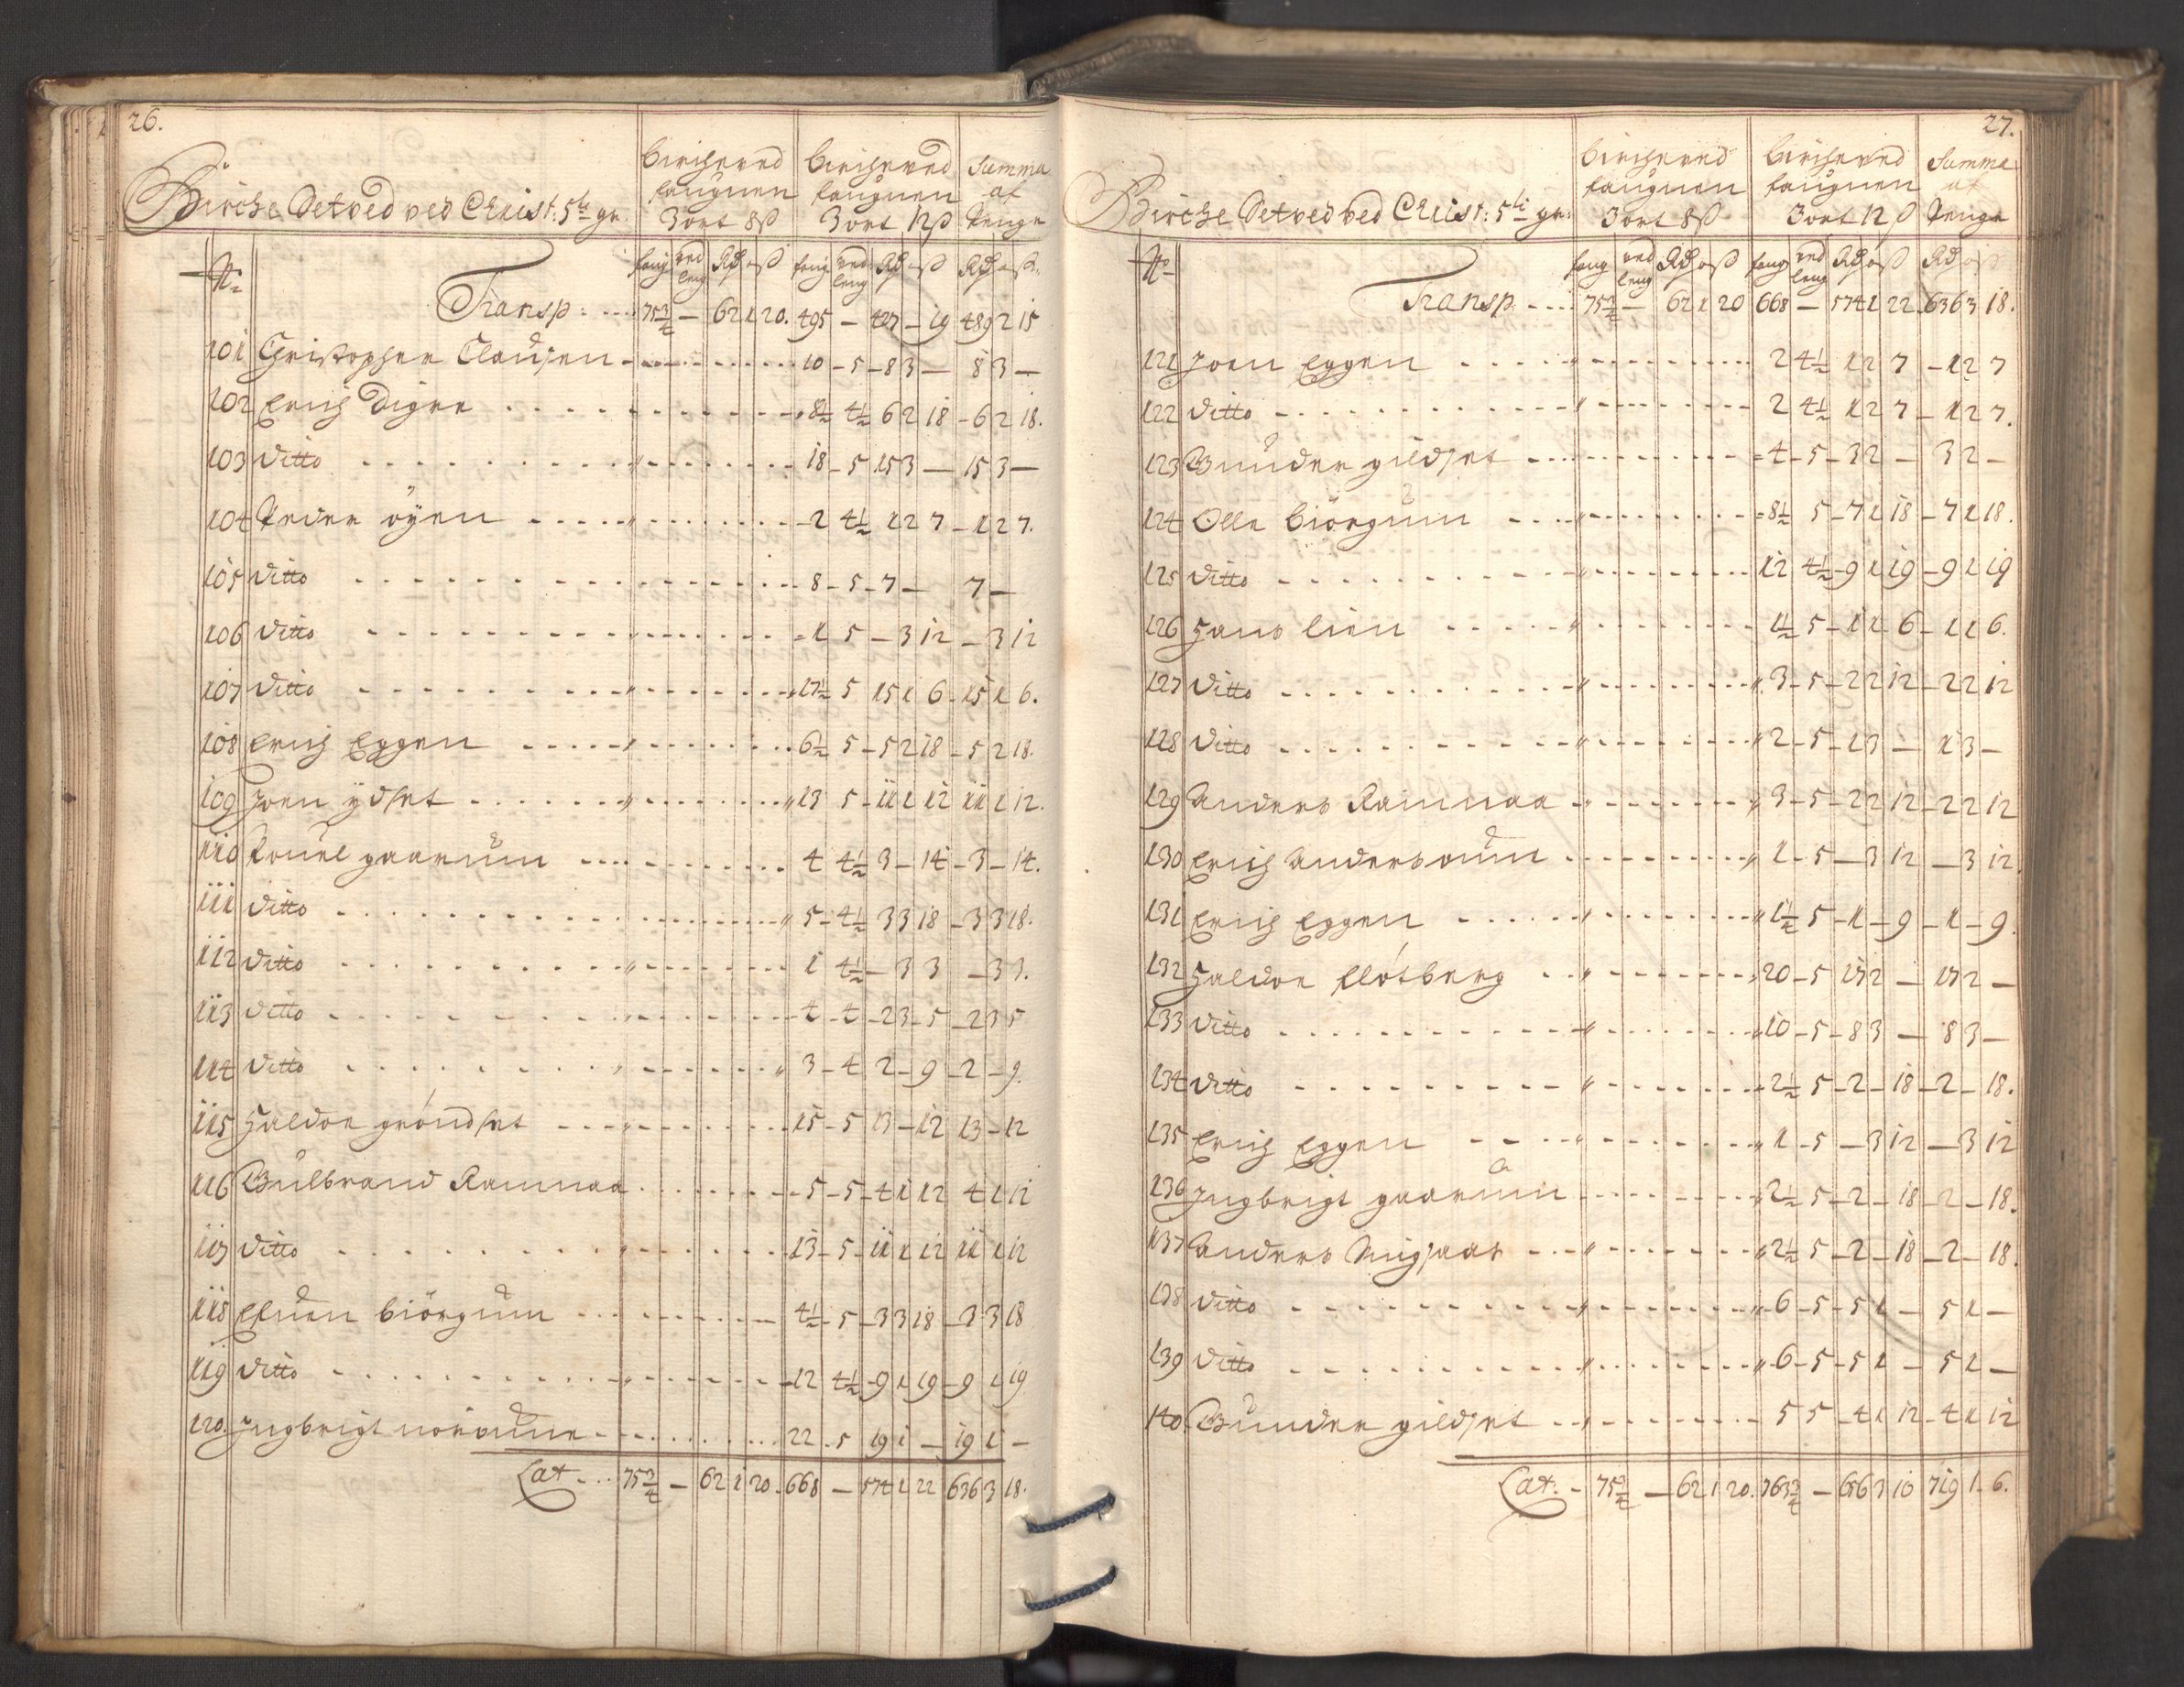 26.
Birche Setved ved Christ: 5ti gr.
bircheved faugnen 3 ort 8ß
bircheved faugnen 3 ort 12ß
Summa af Penge
No faug ved leng Rd ort ß faug ved leng Rd ort ß Rd ort ß
Transp: 75 3/4 – 62 1 20. 495 – 427 – 19 489 2 15
101 Christopher Clausen 10 – 5 – 8 3 – 8 3 –
102 Erich Digre 8 1/2 4 1/2 6 2 18 – 6 2 18.
103 Ditto 18 – 5 15 3 – 15 3 –
104 Peder öyen 2 4 1/2 1 2 7 – 1 2 7.
105 Ditto 8 – 5 – 7 – 7 –
106 Ditto 1 5 – 3 12 – 3 12
107 Ditto 17 1/2 5 15 1 6 – 15 1 6.
108 Erich Eggen 6 1/2 5 – 5 2 18 – 5 2 18.
109 Joen ydset 13 5 – 11 1 12 11 1 12.
110 Pouel gaarum 4 4 1/2 3 – 14 – 3 – 14.
111 Ditto 5 – 4 1/2 3 3 18 – 3 3 18.
112 Ditto 1 4 1/2 – 3 3 – 3 3.
113 Ditto 4 – 4 – 2 3 – 5 – 2 3 5
114 Ditto 3 – 4 2 – 9 – 2 – 9.
115 Haldor gröndset 15 – 5 13 – 12 13 – 12
116 Gulbrand Ramaa 5 – 5 – 4 1 12 4 1 12
117 Ditto 13 – 5 – 11 1 12 11 1 12
118 Efuen biörgum 4 1/2 – 5 – 3 3 18 – 3 3 18
119 Ditto 12 4 1/2 – 9 1 19 – 9 1 19
120. Ingbrigt noraune 22 – 5 19 1 – 19 1 –
Lat 75 3/4 – 62 1 20. 668 – 574 1 22 636 3 18.
27.
Birche Setved ved Christ: 5ti gr:
bircheved faugnen 3 ort 8ß
bircheved faugnen 3 ort 12ß
Summa af Penge
No faug ved leng Rd ort ß faug ved leng Rd ort ß Rd ort ß
Transp 75 3/4 – 62 1 20 668 – 574 1 22. 636 3 18.
121 Joen Eggen 2 4 1/2 1 2 7 – 1 2 7
122 Ditto 2 4 1/2 1 2 7 – 1 2 7.
123 Gunder gildset 4 – 5 – 3 2 – 3 2 –
124 Olle biörgum 8 1/2 5 – 7 1 18 – 7 1 18.
125 Ditto 12 4 1/2 – 9 1 19 – 9 1 19
126 Hans lien 1 1/2 5 – 1 1 6 – 1 1 6.
127 Ditto 3 – 5 – 2 2 12 – 2 2 12
128 Ditto 2 – 5 – 1 3 – 1 3 –
129 Anders Ramaa 3 – 5 – 2 2 12 – 2 2 12
130 Erich Andersaun 1 – 5 – 3 12 – 3 12.
131 Erich Eggen 1 1/4 5 – 1 – 9 – 1 – 9.
132 Haldor flötberg 20 – 5 17 2 – 17 2 –
133 Ditto 10 – 5 – 8 3 – 8 3 –
134 Ditto 2 1/2 5 – 2 – 18 – 2 – 18.
135 Erich Eggen 1 – 5 – 3 12 – 3 12
136 Ingbrigt gaarum 2 1/2 5 – 2 – 18 – 2 – 18.
137 Anders 2 1/2 5 – 2 – 18 – 2 – 18.
138 Ditto 6 – 5 – 5 1 – 5 1 –
139 Ditto 6 – 5 – 5 1 – 5 1 –
140. Gunder gildset 5 5 – 4 1 12 – 4 1 12
Lat. 75 3/4 – 62 1 20. 763 3/4 – 656 3 10 719 1 6.